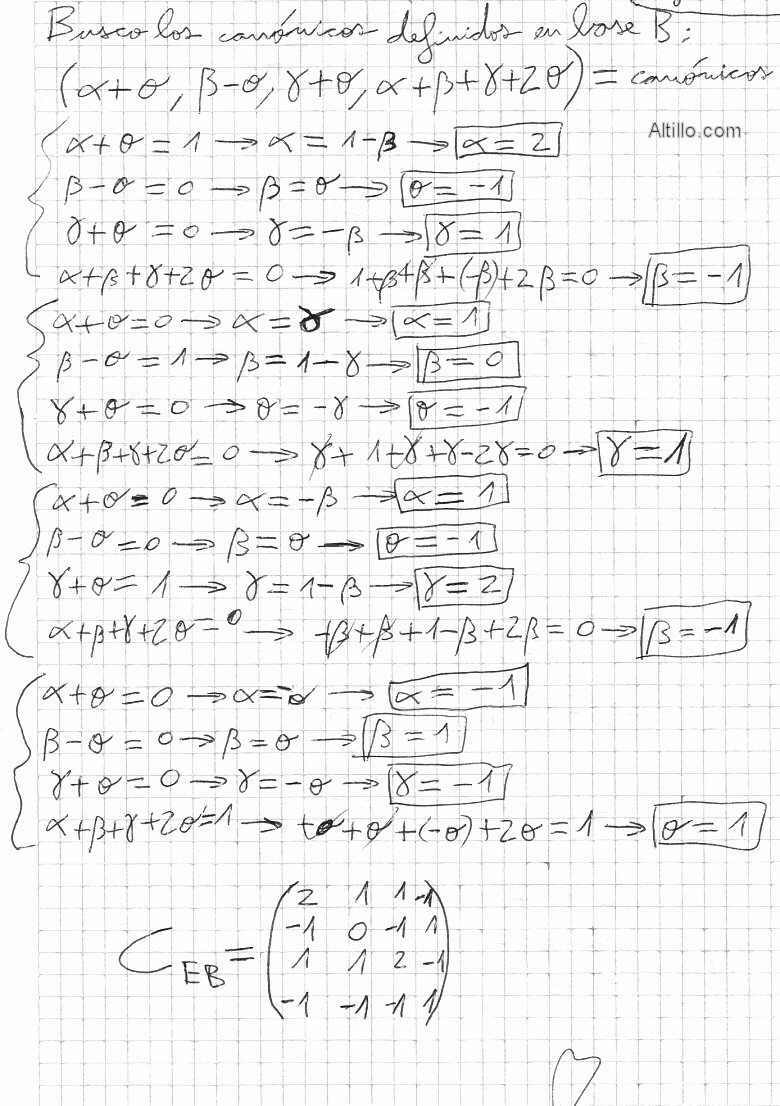 Busco los canónicos definidos en base B:
(α+σ, β-σ, γ+σ, α+β+γ+2σ) = canónicos
Altillo.com
α+σ = 1 → α = 1-β → α = 2
β-σ = 0 → β = σ → σ = -1
γ+σ = 0 → γ = -β → γ = 1
α+β+γ+2σ = 0 → 1-β+β+(-β)+2β = 0 → β = -1
α+σ = 0 → α = γ → α = 1
β-σ = 1 → β = 1-γ → β = 0
γ+σ = 0 → σ = -γ → σ = -1
α+β+γ+2σ = 0 → γ+1-γ+γ-2γ = 0 → γ = 1
α+σ = 0 → α = -β → α = 1
β-σ = 0 → β = σ → σ = -1
γ+σ = 1 → γ = 1-β → γ = 2
α+β+γ+2σ = 0 → -β+β+1-β+2β = 0 → β = -1
α+σ = 0 → α = -σ → α = -1
β-σ = 0 → β = σ → β = 1
γ+σ = 0 → γ = -σ → γ = -1
α+β+γ+2σ = 1 → -σ+σ+(-σ)+2σ = 1 → σ = 1
2 1 1 -1
-1 0 -1 1
C_EB =
1 1 2 -1
-1 -1 -1 1